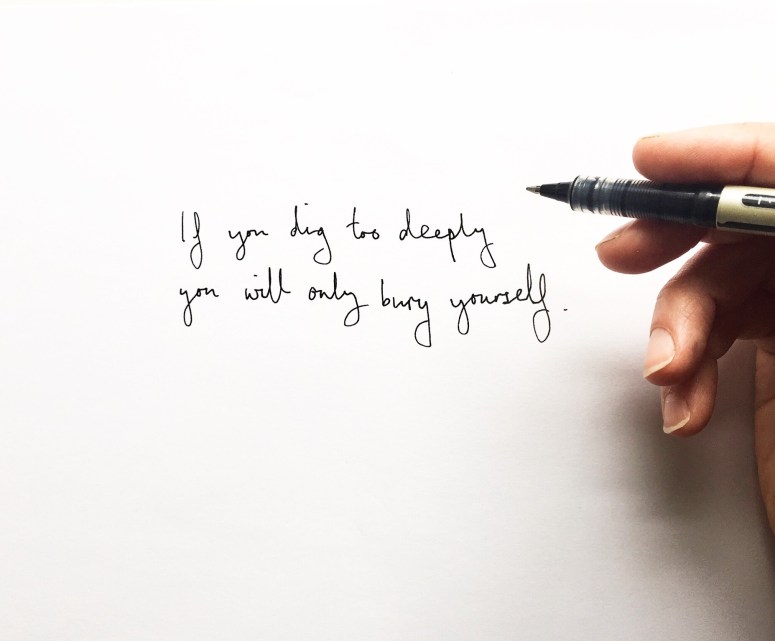 If you dig too deeply
you will only bury yourself.